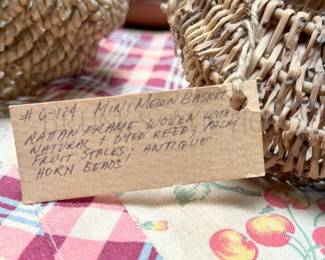 # 6-124 MINI MELON BASKET
RATTAN FRAME WOVEN WITH
NATURAL & DYED REED; PALM
FRUIT STALKS; ANTIQUE
HORN BEADS;